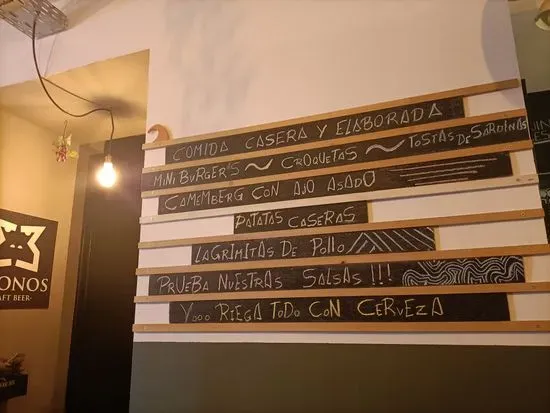 COMIDA CASERA Y ELABORADA
MINI BURGER'S ~ CROQUETAS ~ TOSTAS DE SARDINAS
CAMEMBERG CON AJO ASADO
PATATAS CASERAS
LAGRIMITAS DE POLLO
PRUEBA NUESTRAS SALSAS !!!
Y... RIEGA TODO CON CERVEZA
ONOS
AFT BEER·